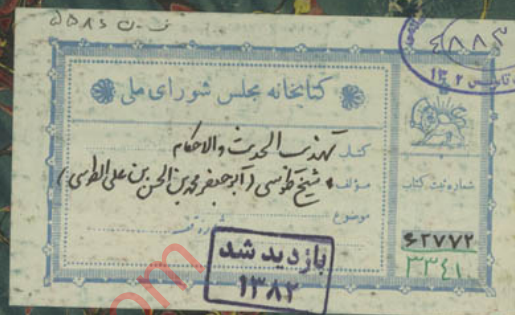 ف - ن ۵۵۸۶
۴۸۸۳
۱۳۰۲
کتابخانه مجلس شورای ملی
کتاب تهذیب الحدیث والاحکام
مؤلف شیخ طوسی (ابوجعفر محمد بن الحسن بن علی الطوسی)
موضوع
شماره ثبت کتاب
۶۲۷۷۲
۳۳۴۱۰
بازدید شد
۱۳۸۲
com